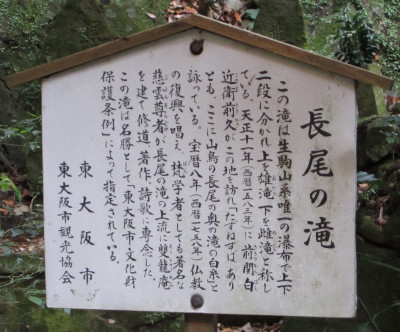 長尾の滝
この滝は生駒山系唯一の瀑布で上下
二段に分かれ上を雄滝、下を雌滝と称し
ている。天正十一年(西暦一五八三年)に前関白
近衛前久がこの地を訪れ「たずねずば、あり
とも、ここに山鳥の長尾の奥の滝の白糸」と
詠っている。宝暦八年(西暦一七五八年)仏教
の復興を唱え、梵学者としても著名な
慈雲尊者が長尾の滝の上流に雙龍庵
を建て修道、著作、詩歌に専念した。
この滝は名勝として「東大阪市文化財
保護条例」によって指定されている。
東大阪市
東大阪市観光協会